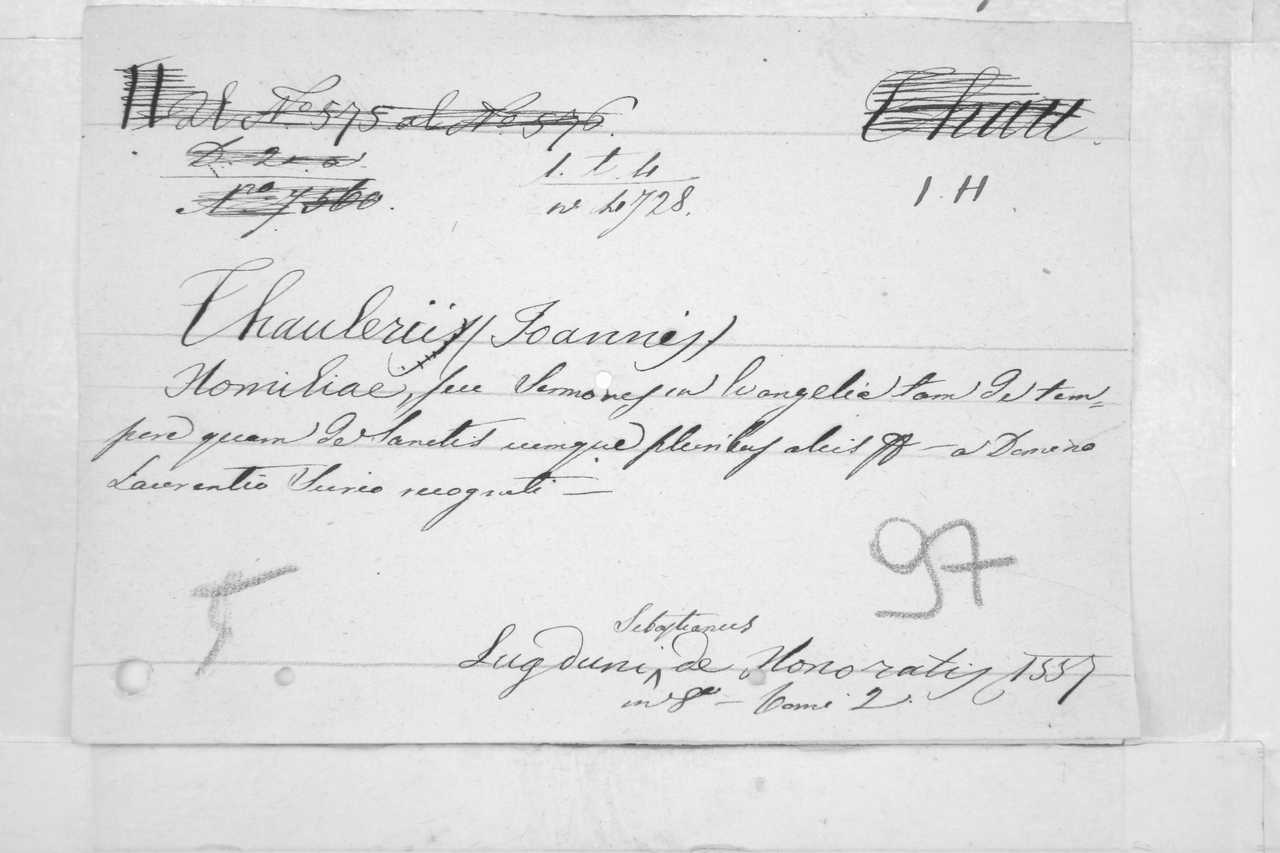 al No 575 al No 576.
Thau.
D. 2. a
1. t. 4
No 7560.
no 4728.
1 H
Thauleriis (Joannis)
Homiliae, seu Sermones in Evangelia tam de tem=
pore quam de Sanctis cumque pluribus aliis — a Domino
Laurentio Surio recogniti —
97
Sebastianus
Lugduni, de Honoratis, 1557
in 8o — tomi 2.